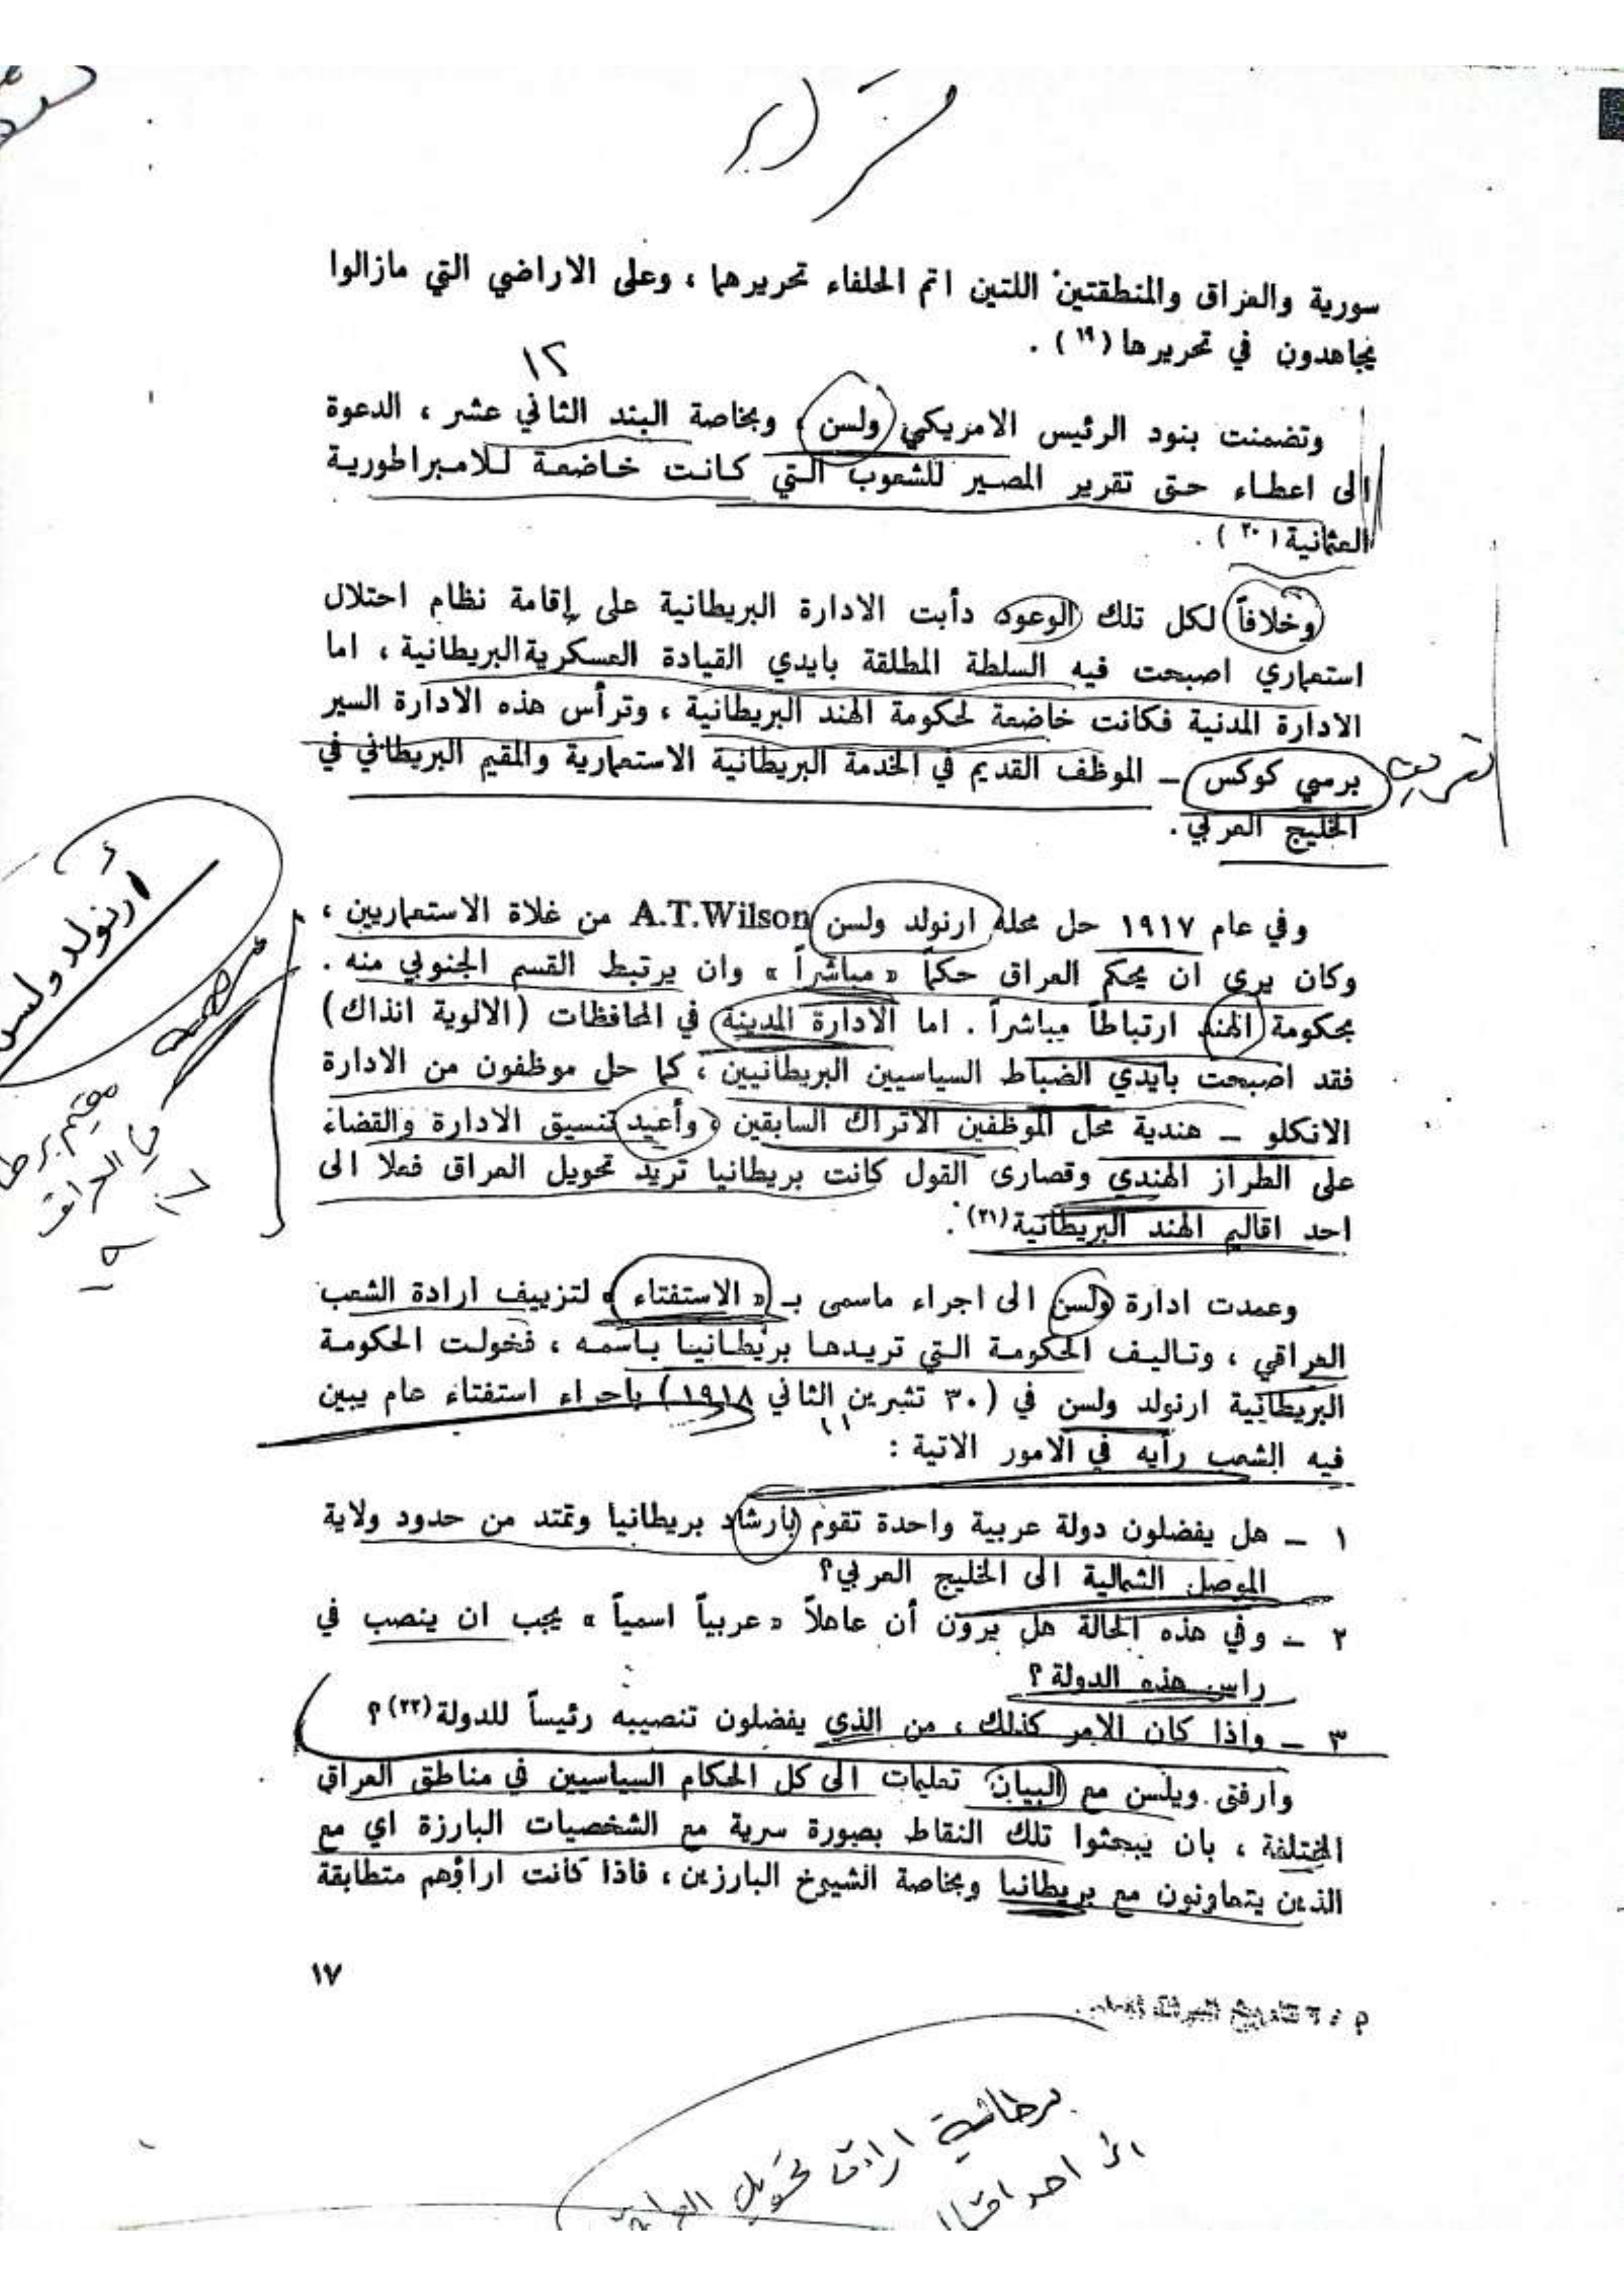 سورية والعراق والمنطقتين اللتين اتم الحلفاء تحريرهما ، وعلى الاراضي التي مازالوا
يجاهدون في تحريرها (١٩) .
١٢
وتضمنت بنود الرئيس الامريكي ولسن ، وبخاصة البند الثاني عشر ، الدعوة
الى اعطاء حق تقرير المصير للشعوب التي كانت خاضعة للامبراطورية
العثمانية (٢٠) .
وخلافاً لكل تلك الوعود دأبت الادارة البريطانية على إقامة نظام احتلال
استعماري اصبحت فيه السلطة المطلقة بايدي القيادة العسكرية البريطانية ، اما
الادارة المدنية فكانت خاضعة لحكومة الهند البريطانية ، وترأس هذه الادارة السير
برسي كوكس – الموظف القديم في الخدمة البريطانية الاستعمارية والمقيم البريطاني في
تعريف
الخليج العربي .
أرنولد ولسن
وفي عام ١٩١٧ حل محله ارنولد ولسن A.T.Wilson من غلاة الاستعماريين ،
وكان يرى ان يحكم العراق حكماً « مباشراً » وان يرتبط القسم الجنوبي منه .
بحكومة الهند ارتباطاً مباشراً . اما الادارة المدينة في المحافظات (الالوية انذاك)
فقد اصبحت بايدي الضباط السياسيين البريطانيين ، كما حل موظفون من الادارة
الانكلو – هندية محل الموظفين الاتراك السابقين ، وأعيد تنسيق الادارة والقضاء
على الطراز الهندي وقصارى القول كانت بريطانيا تريد تحويل العراق فعلا الى
احد اقاليم الهند البريطانية (٢١) .
في العراق
وعمدت ادارة ولسن الى اجراء ماسمى بـ « الاستفتاء » لتزييف ارادة الشعب
العراقي ، وتاليف الحكومة التي تريدها بريطانيا باسمه ، فخولت الحكومة
البريطانية ارنولد ولسن في (٣٠ تشرين الثاني ١٩١٨) باجراء استفتاء عام يبين
١١
فيه الشعب رأيه في الامور الاتية :
١ – هل يفضلون دولة عربية واحدة تقوم بأرشاد بريطانيا وتمتد من حدود ولاية
الموصل الشمالية الى الخليج العربي؟
٢ – وفي هذه الحالة هل يرون أن عاهلاً « عربياً اسمياً » يجب ان ينصب في
راس هذه الدولة ؟
٣ – واذا كان الامر كذلك ، من الذي يفضلون تنصيبه رئيساً للدولة (٢٢) ؟
وارفق ويلسن مع البيان تعليمات الى كل الحكام السياسيين في مناطق العراق
المختلفة ، بان يبحثوا تلك النقاط بصورة سرية مع الشخصيات البارزة اي مع
الذين يتعاونون مع بريطانيا وبخاصة الشيوخ البارزين ، فاذا كانت اراؤهم متطابقة
١٧
برطانية ارادت تحويل العراق
الى احد اقاليم